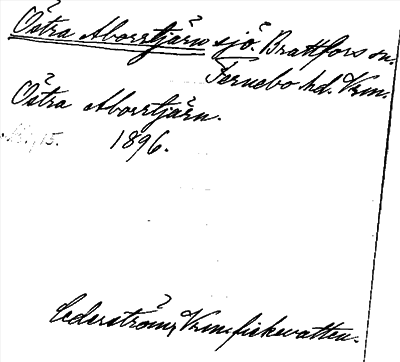 Östra Aborrtjärn sjö. Brattfors sn.
Fernebo hd. Vrm.
Östra Aborrtjärn.
1896.
Cederström, Vrm. fiskevatten.